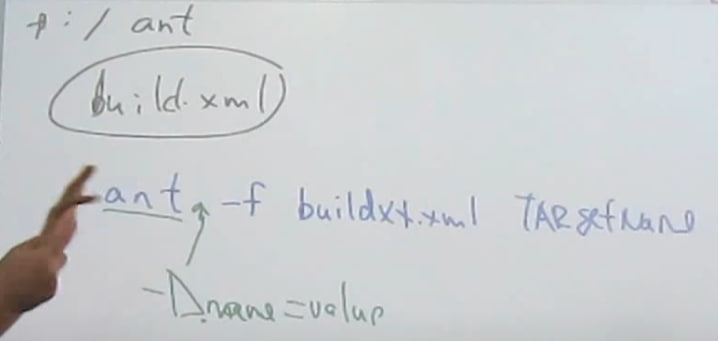 p:/ ant
build.xml
ant -f buildxx.xml TARgetName
-Dname=value